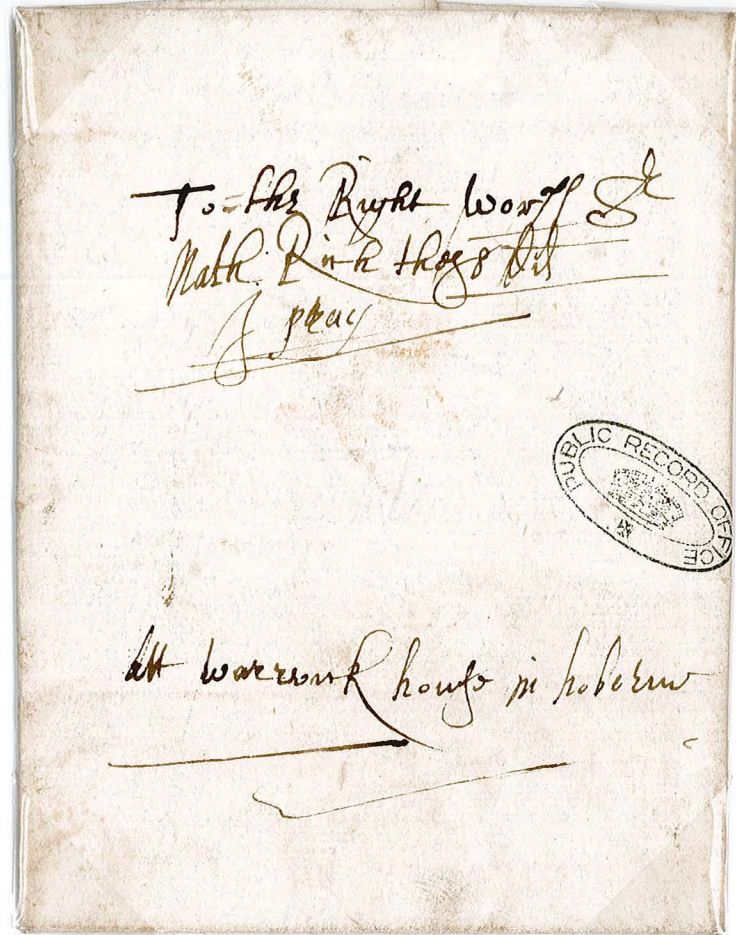 To the Right worpll Sr
Nath. Rich thes dd
I pray
PUBLIC RECORD OFFICE
att warwick house in holborne